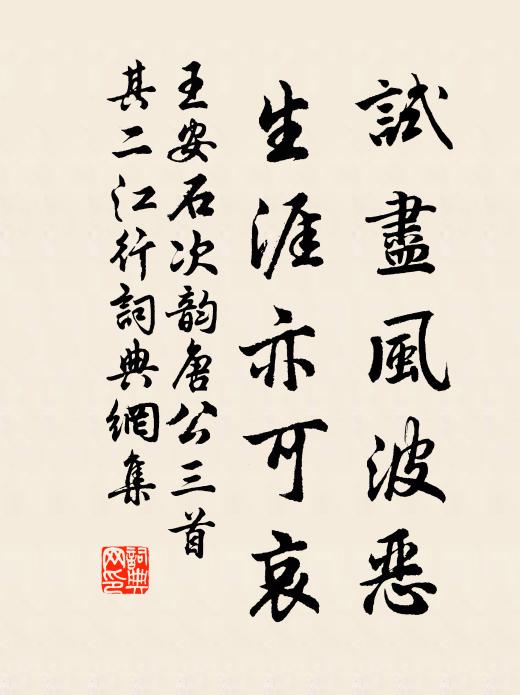 試盡風波惡
生涯亦可哀
王安石次韵唐公三首
其二江行詞典網集
詞典網印